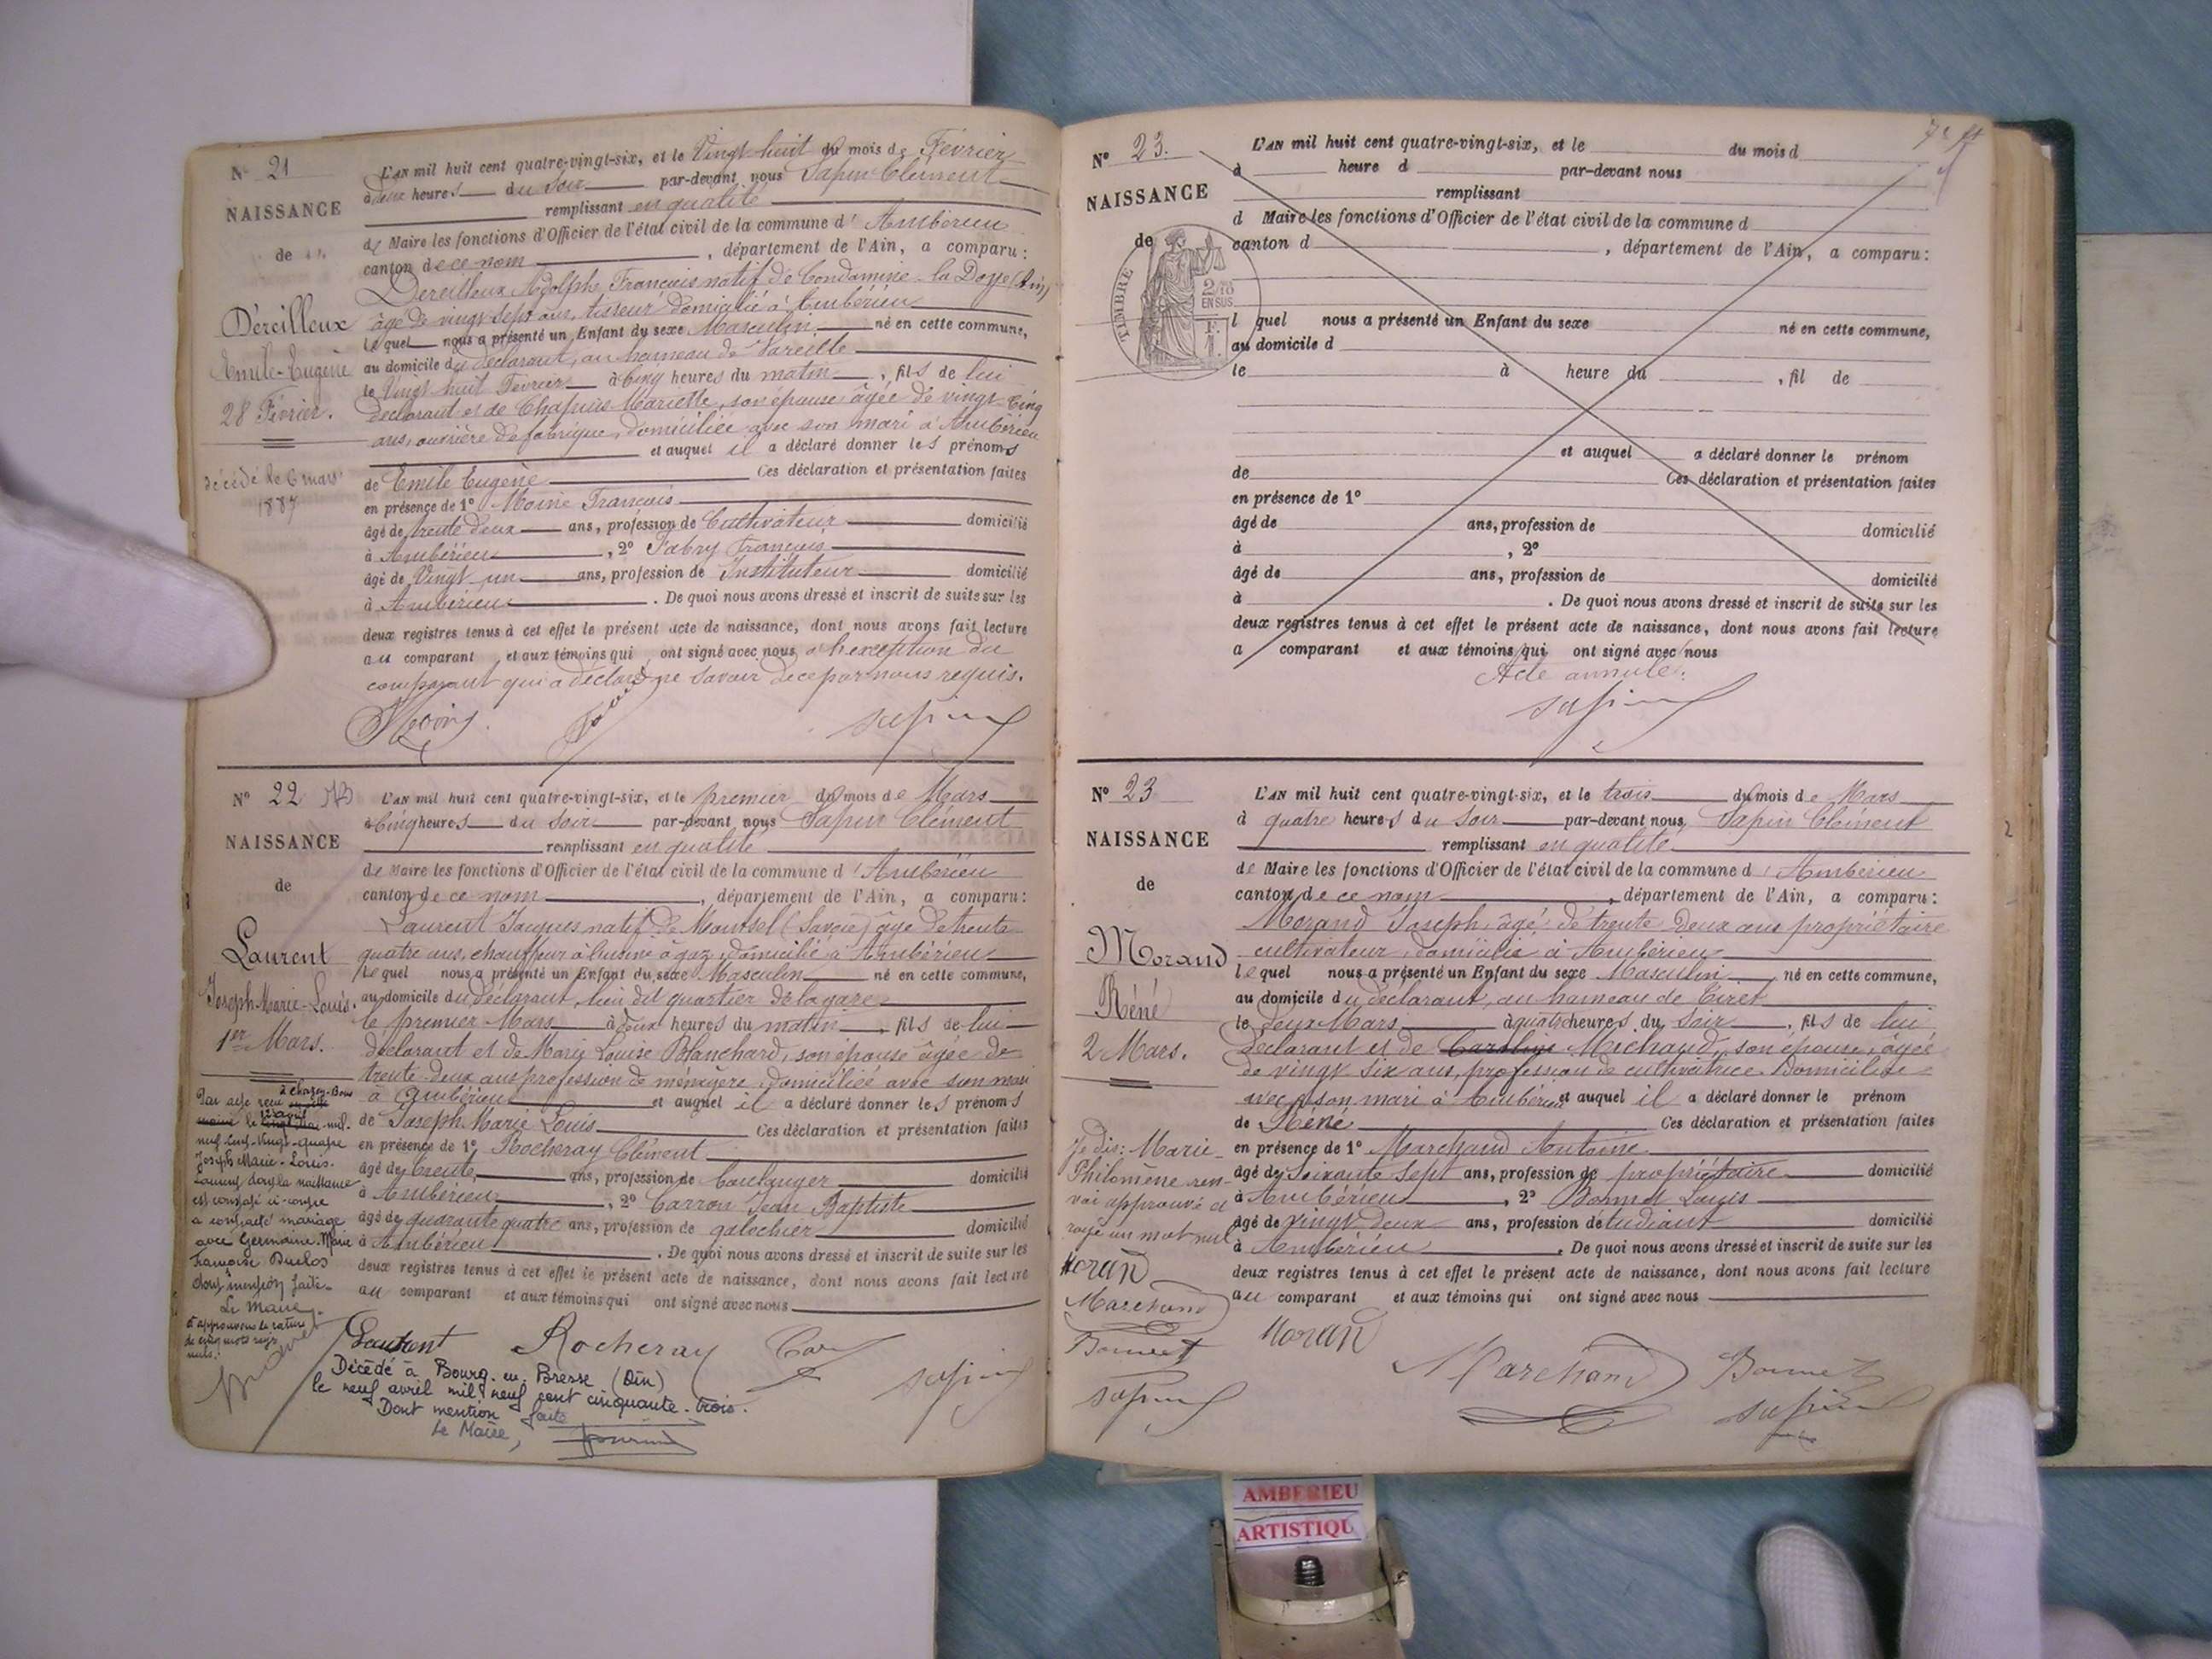 N° 21
NAISSANCE
de
Déreilleux
Emile-Eugène
28 Février.
décédé le 6 mars
1887
L'AN mil huit cent quatre-vingt-six, et le Vingt huit du mois de Février
à deux heures du Soir par-devant nous Sapin Clément
remplissant en qualité
de Maire les fonctions d'Officier de l'état civil de la commune d'Ambérieu
canton de ce nom, département de l'Ain, a comparu:
Déreilleux Adolphe François natif de Condamine-la-Doye (Ain)
âgé de vingt sept ans, tisseur domicilié à Ambérieu
lequel nous a présenté un Enfant du sexe Masculin né en cette commune,
au domicile du déclarant, au hameau de Vareille
le Vingt huit Février à Cinq heures du matin, fils de lui
déclarant et de Chapuis Mariette, son épouse âgée de vingt-Cinq
ans, ouvrière de fabrique, domiciliée avec son mari à Ambérieu
et auquel il a déclaré donner les prénoms
de Emile Eugène Ces déclaration et présentation faites
en présence de 1° Moine François
âgé de trente deux ans, profession de Cultivateur domicilié
à Ambérieu, 2° Fabry François
âgé de Vingt un ans, profession de Instituteur domicilié
à Ambérieu. De quoi nous avons dressé et inscrit de suite sur les
deux registres tenus à cet effet le présent acte de naissance, dont nous avons fait lecture
au comparant et aux témoins qui ont signé avec nous à l'exception du
comparant qui a déclaré ne savoir de ce par nous requis.
Sapin
N° 22
NAISSANCE
de
Laurent
Joseph-Marie-Louis.
1er Mars.
L'AN mil huit cent quatre-vingt-six, et le premier du mois de Mars
à Cinq heures du Soir par-devant nous Sapin Clément
remplissant en qualité
de Maire les fonctions d'Officier de l'état civil de la commune d'Ambérieu
canton de ce nom, département de l'Ain, a comparu:
Laurent Jacques natif de (Savoie) âgé de trente
quatre ans, chauffeur à l'usine à gaz, domicilié à Ambérieu
lequel nous a présenté un Enfant du sexe Masculin né en cette commune,
au domicile du déclarant, lieu dit quartier de la gare
le premier Mars à deux heures du matin, fils de lui
déclarant et de Marie Louise Blanchard, son épouse âgée de
trente-deux ans profession de ménagère, domiciliée avec son mari
à Ambérieu et auquel il a déclaré donner les prénoms
de Joseph Marie Louis Ces déclaration et présentation faites
en présence de 1° Rocheray Clément
âgé de trente ans, profession de boulanger domicilié
à Ambérieu, 2° Carron Jean Baptiste
âgé de quarante quatre ans, profession de galochier domicilié
à Ambérieu. De quoi nous avons dressé et inscrit de suite sur les
deux registres tenus à cet effet le présent acte de naissance, dont nous avons fait lecture
au comparant et aux témoins qui ont signé avec nous
Par acte reçu à Chazey-Bons
le mil
neuf cent-vingt-quatre
Joseph Marie-Louis.
Laurent dont la naissance
est constatée ci-contre
a contracté mariage
avec Germaine-Marie
Françoise Duclos
Dont mention faite.
Le Maire,
et approuvons la rature
de cinq mots rayés
nuls.
Laurent Rocheray Carron Sapin
Décédé à Bourg-en-Bresse (Ain)
le neuf avril mil neuf cent cinquante-trois.
Dont mention faite
Le Maire,
N° 23.
NAISSANCE
de
TIMBRE
2/10
EN SUS
1 F.
L'AN mil huit cent quatre-vingt-six, et le du mois d
à heure d par-devant nous
remplissant
d Maire les fonctions d'Officier de l'état civil de la commune d
canton d , département de l'Ain, a comparu:
l quel nous a présenté un Enfant du sexe né en cette commune,
au domicile d
le à heure du , fil de
et auquel a déclaré donner le prénom
de Ces déclaration et présentation faites
en présence de 1°
âgé de ans, profession de domicilié
à , 2°
âgé de ans, profession de domicilié
à . De quoi nous avons dressé et inscrit de suite sur les
deux registres tenus à cet effet le présent acte de naissance, dont nous avons fait lecture
a comparant et aux témoins qui ont signé avec nous
Acte annulé.
Sapin
N° 23
NAISSANCE
de
Morand
Réné
2 Mars.
L'AN mil huit cent quatre-vingt-six, et le trois du mois de Mars
à quatre heures du Soir par-devant nous Sapin Clément
remplissant en qualité
de Maire les fonctions d'Officier de l'état civil de la commune d'Ambérieu
canton de ce nom, département de l'Ain, a comparu:
Morand Joseph, âgé de trente deux ans propriétaire
cultivateur, domicilié à Ambérieu
lequel nous a présenté un Enfant du sexe Masculin né en cette commune,
au domicile du déclarant, au hameau de Tiret
le deux Mars à quatre heures du Soir, fils de lui
déclarant et de Caroline Michaud, son épouse, âgée
de vingt Six ans, profession de cultivatrice domiciliée
avec son mari à Ambérieu et auquel il a déclaré donner le prénom
de Réné Ces déclaration et présentation faites
en présence de 1° Marchand Antoine
âgé de Soixante Sept ans, profession de propriétaire domicilié
à Ambérieu, 2° Bonnet Louis
âgé de vingt deux ans, profession d'étudiant domicilié
à Ambérieu. De quoi nous avons dressé et inscrit de suite sur les
deux registres tenus à cet effet le présent acte de naissance, dont nous avons fait lecture
au comparant et aux témoins qui ont signé avec nous
Je dis: Marie-
Philomène ren-
voi approuvé et
rayé un mot nul
Moran
Marchand
Bonnet
Sapin
Moran Marchand Bonnet
Sapin
AMBERIEU
ARTISTIQU